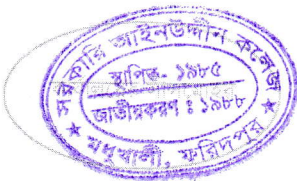 সরকারি আইনউদ্দীন কলেজ
স্থাপিত- ১৯৮৫
জাতীয়করণ ঃ ১৯৮৮
★ মধুখালী, ফরিদপুর ★